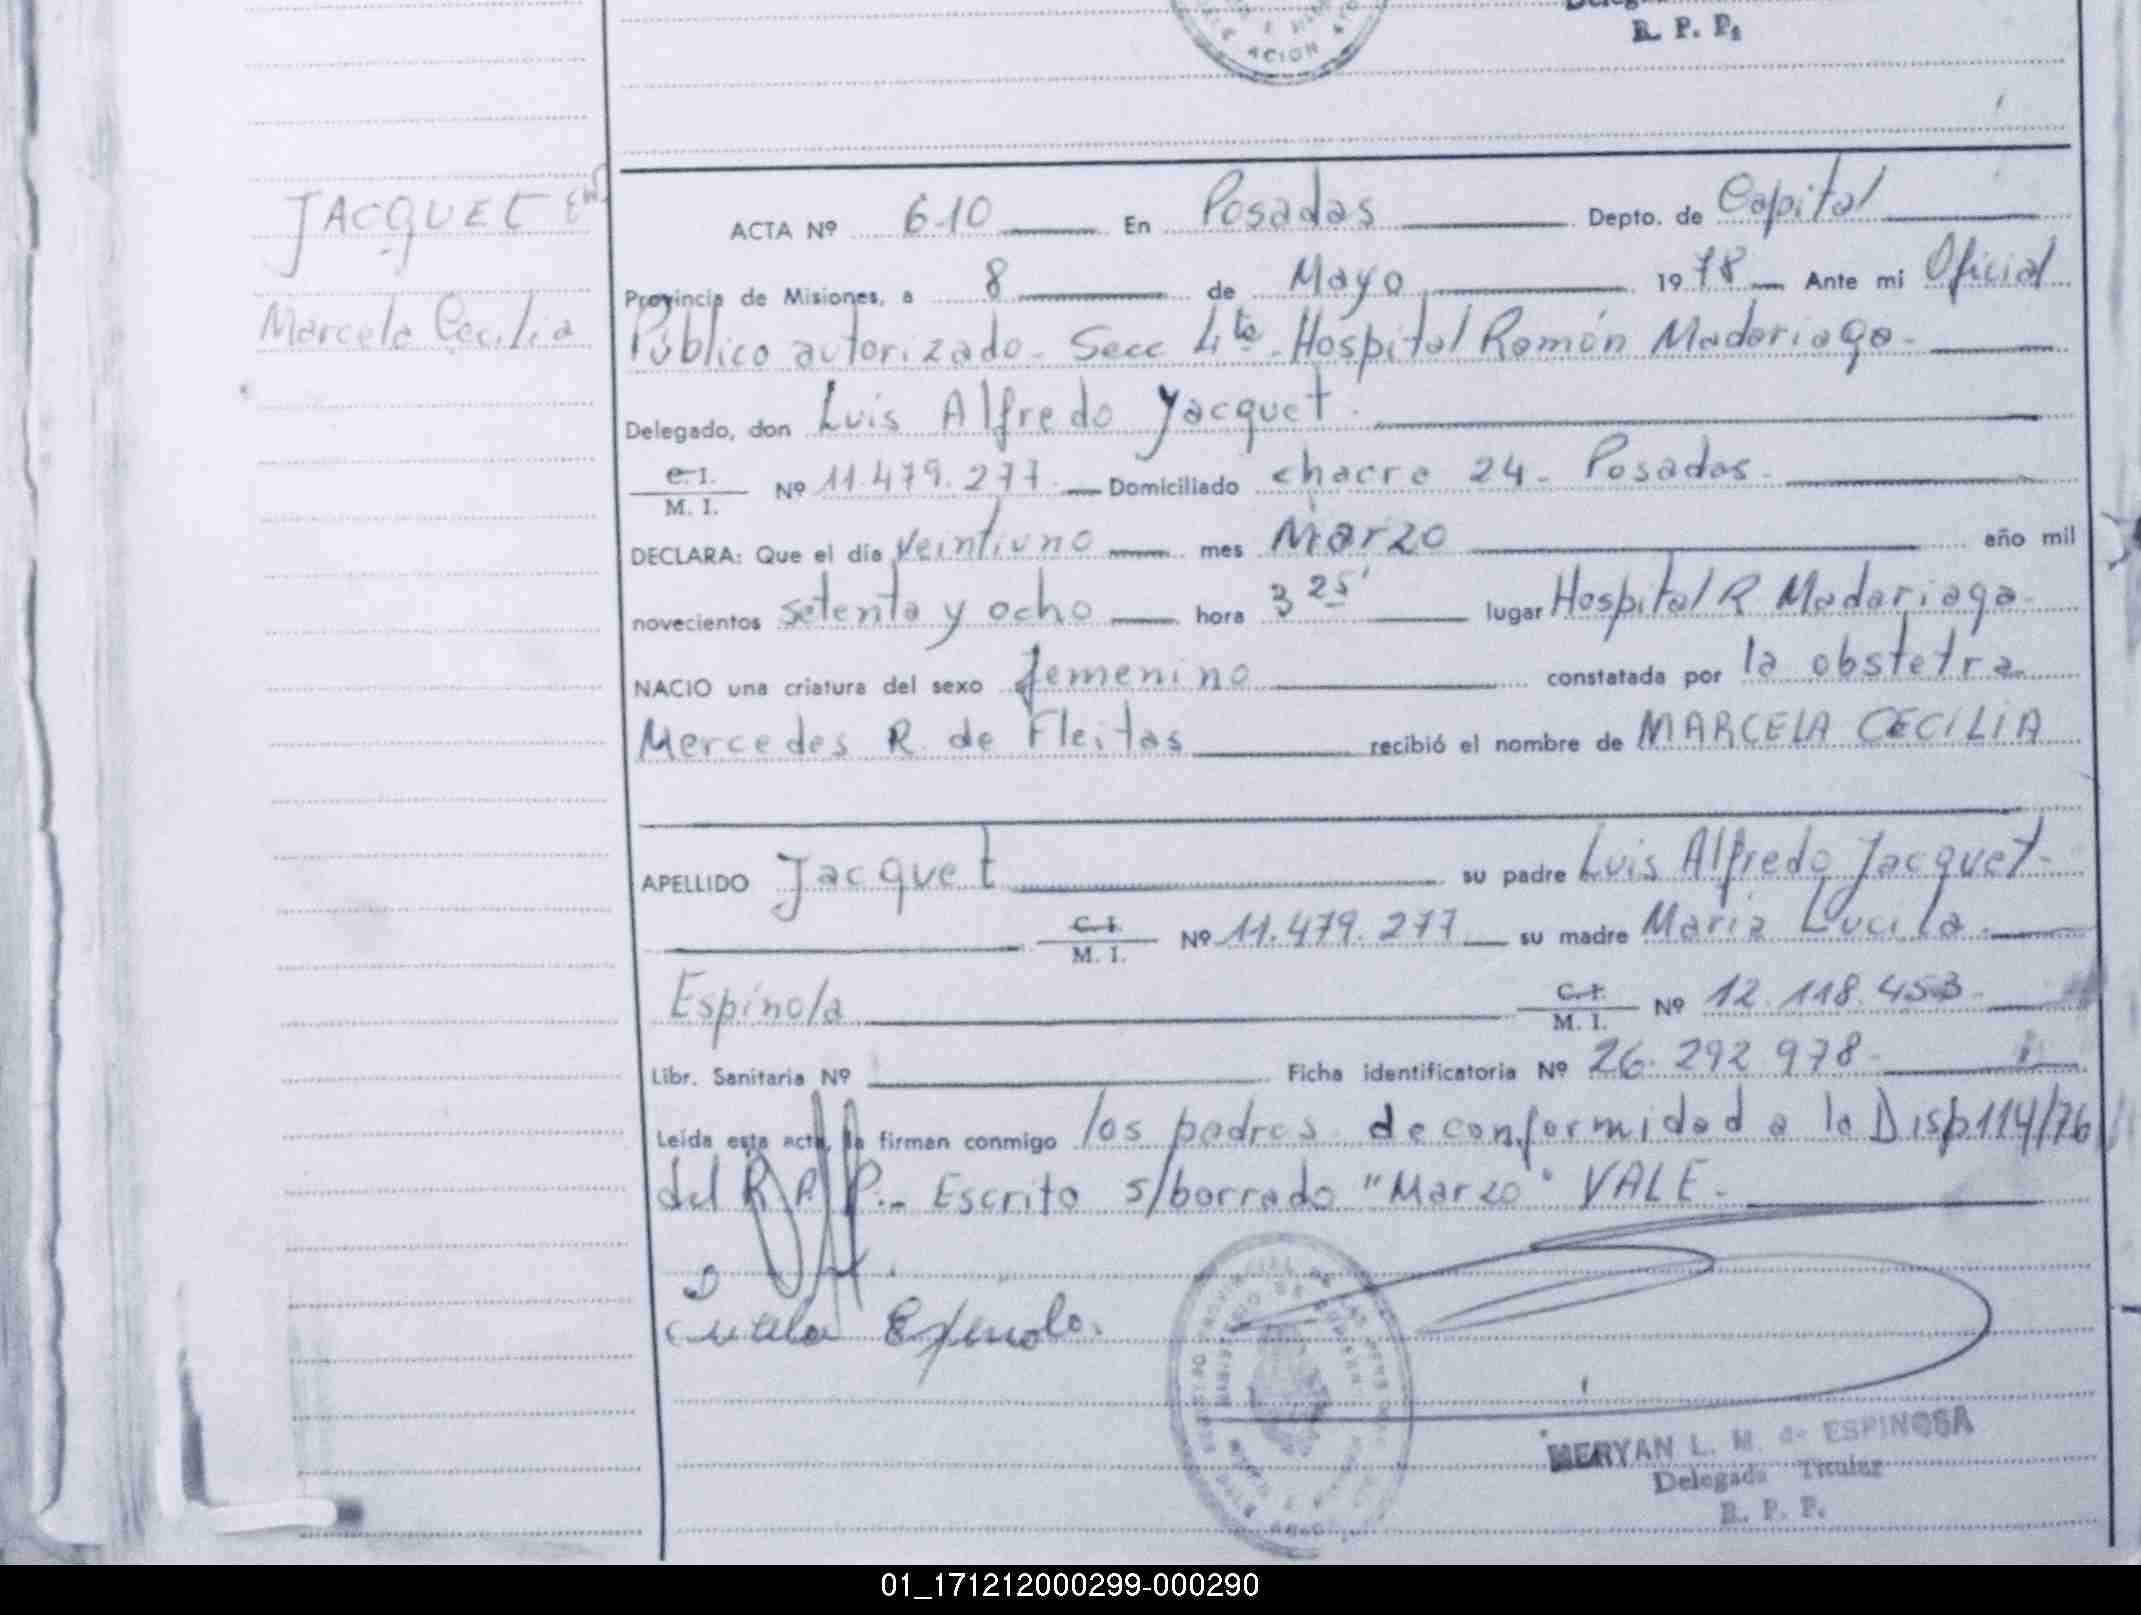 ACION
R. P. P.
JACQUET
Marcela Cecilia
ACTA Nº 610 En Posadas Depto. de Capital
Provincia de Misiones, a 8 de Mayo 1978 Ante mi Oficial
Público autorizado - Secc 4ta - Hospital Ramón Madariaga -
Delegado, don Luis Alfredo Jacquet.
C. I. / M. I. Nº 11.479.277. Domiciliado chacra 24 - Posadas -
DECLARA: Que el día veintiuno mes Marzo año mil
novecientos setenta y ocho hora 3 25' lugar Hospital R Madariaga -
NACIO una criatura del sexo femenino constatada por la obstetra
Mercedes R. de Fleitas recibió el nombre de MARCELA CECILIA
APELLIDO Jacquet su padre Luis Alfredo Jacquet -
C. I. / M. I. Nº 11.479.277 su madre Maria Lucila
Espínola C. I. / M. I. Nº 12.118.453 -
Libr. Sanitaria Nº Ficha identificatoria Nº 26.292.978 -
Leída esta acta, la firman conmigo los padres de conformidad a la Disp 114/76
del R.P.P. - Escrito s/borrado "Marzo" VALE -
Espinola.
MERYAN L. M. de ESPINOSA
Delegada Titular
R. P. P.
01_171212000299-000290